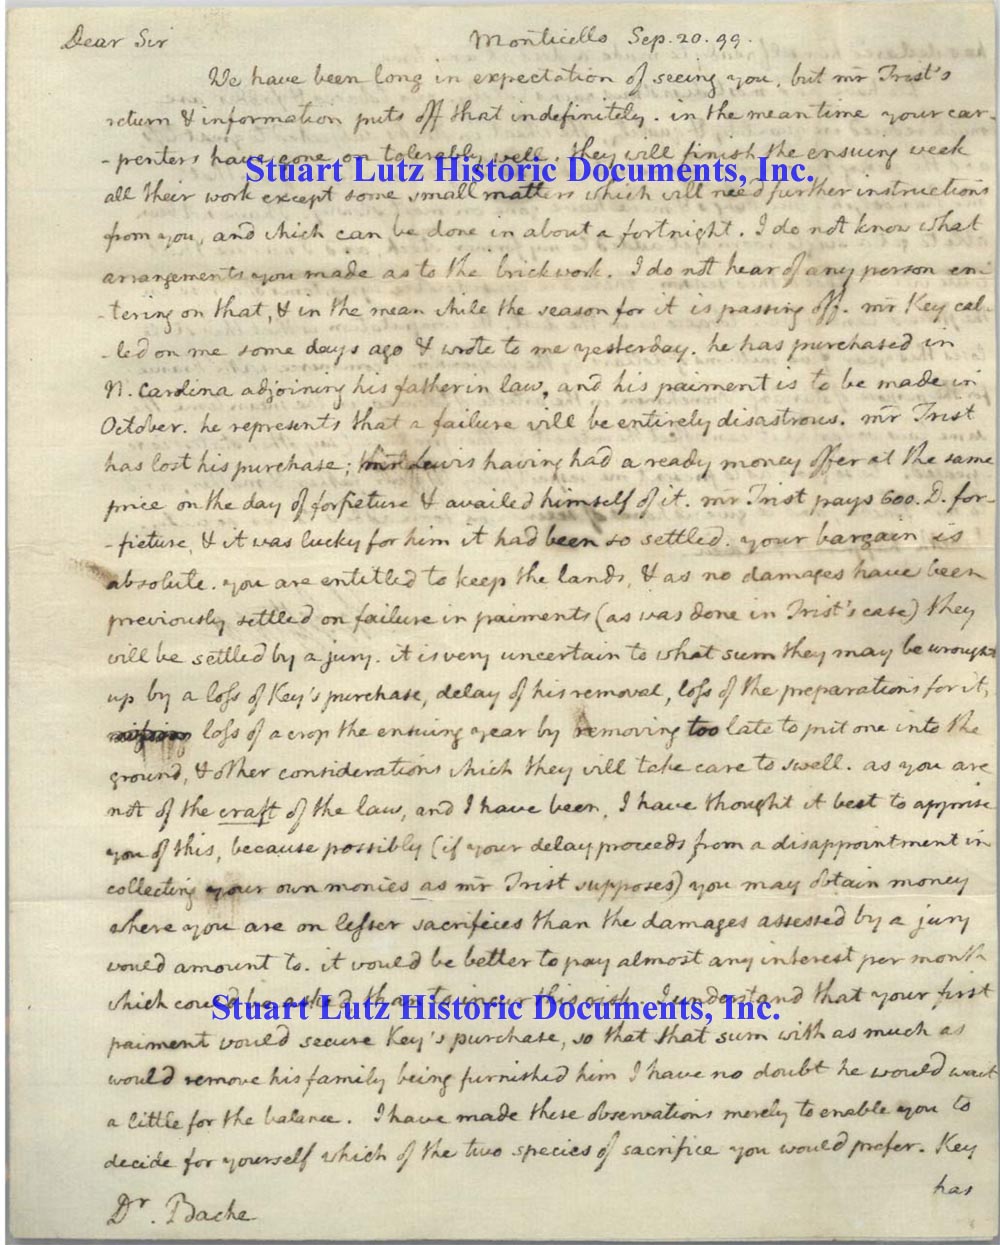 Dear Sir Monticello Sep. 20. 99.
We have been long in expectation of seeing you, but mr Trist's
return & information puts off that indefinitely. in the mean time your car-
-penters have gone on tolerably well. they will finish the ensuing week
Stuart Lutz Historic Documents, Inc.
all their work except some small matters which will need further instructions
from you, and which can be done in about a fortnight. I do not know what
arrangements you made as to the brickwork. I do not hear of any person en-
-tering on that, & in the mean while the season for it is passing off. mr Key cal-
-led on me some days ago & wrote to me yesterday. he has purchased in
N. Carolina adjoining his father in law, and his paiment is to be made in
October. he represents that a failure will be entirely disastrous. mr Trist
has lost his purchase; mr Lewis having had a ready money offer at the same
price on the day of forfieture & availed himself of it. mr Trist pays 600. D. for-
-fieture, & it was lucky for him it had been so settled. your bargain is
absolute. you are entitled to keep the lands, & as no damages have been
previously settled on failure in paiments (as was done in Trist's case) they
will be settled by a jury. it is very uncertain to what sum they may be wrought
up by a loss of Key's purchase, delay of his removal, loss of the preparations for it,
loss of a crop the ensuing year by removing too late to put one into the
ground, & other considerations which they will take care to swell. as you are
not of the craft of the law, and I have been, I have thought it best to apprise
you of this, because possibly (if your delay proceeds from a disappointment in
collecting your own monies as mr Trist supposes) you may obtain money
where you are on lesser sacrifices than the damages assessed by a jury
would amount to. it would be better to pay almost any interest per month
which could be asked than to incur this risk. I understand that your first
Stuart Lutz Historic Documents, Inc.
paiment would secure Key's purchase, so that that sum with as much as
would remove his family being furnished him I have no doubt he would wait
a little for the balance. I have made these observations merely to enable you to
decide for yourself which of the two species of sacrifice you would prefer. Key
has
Dr. Bache